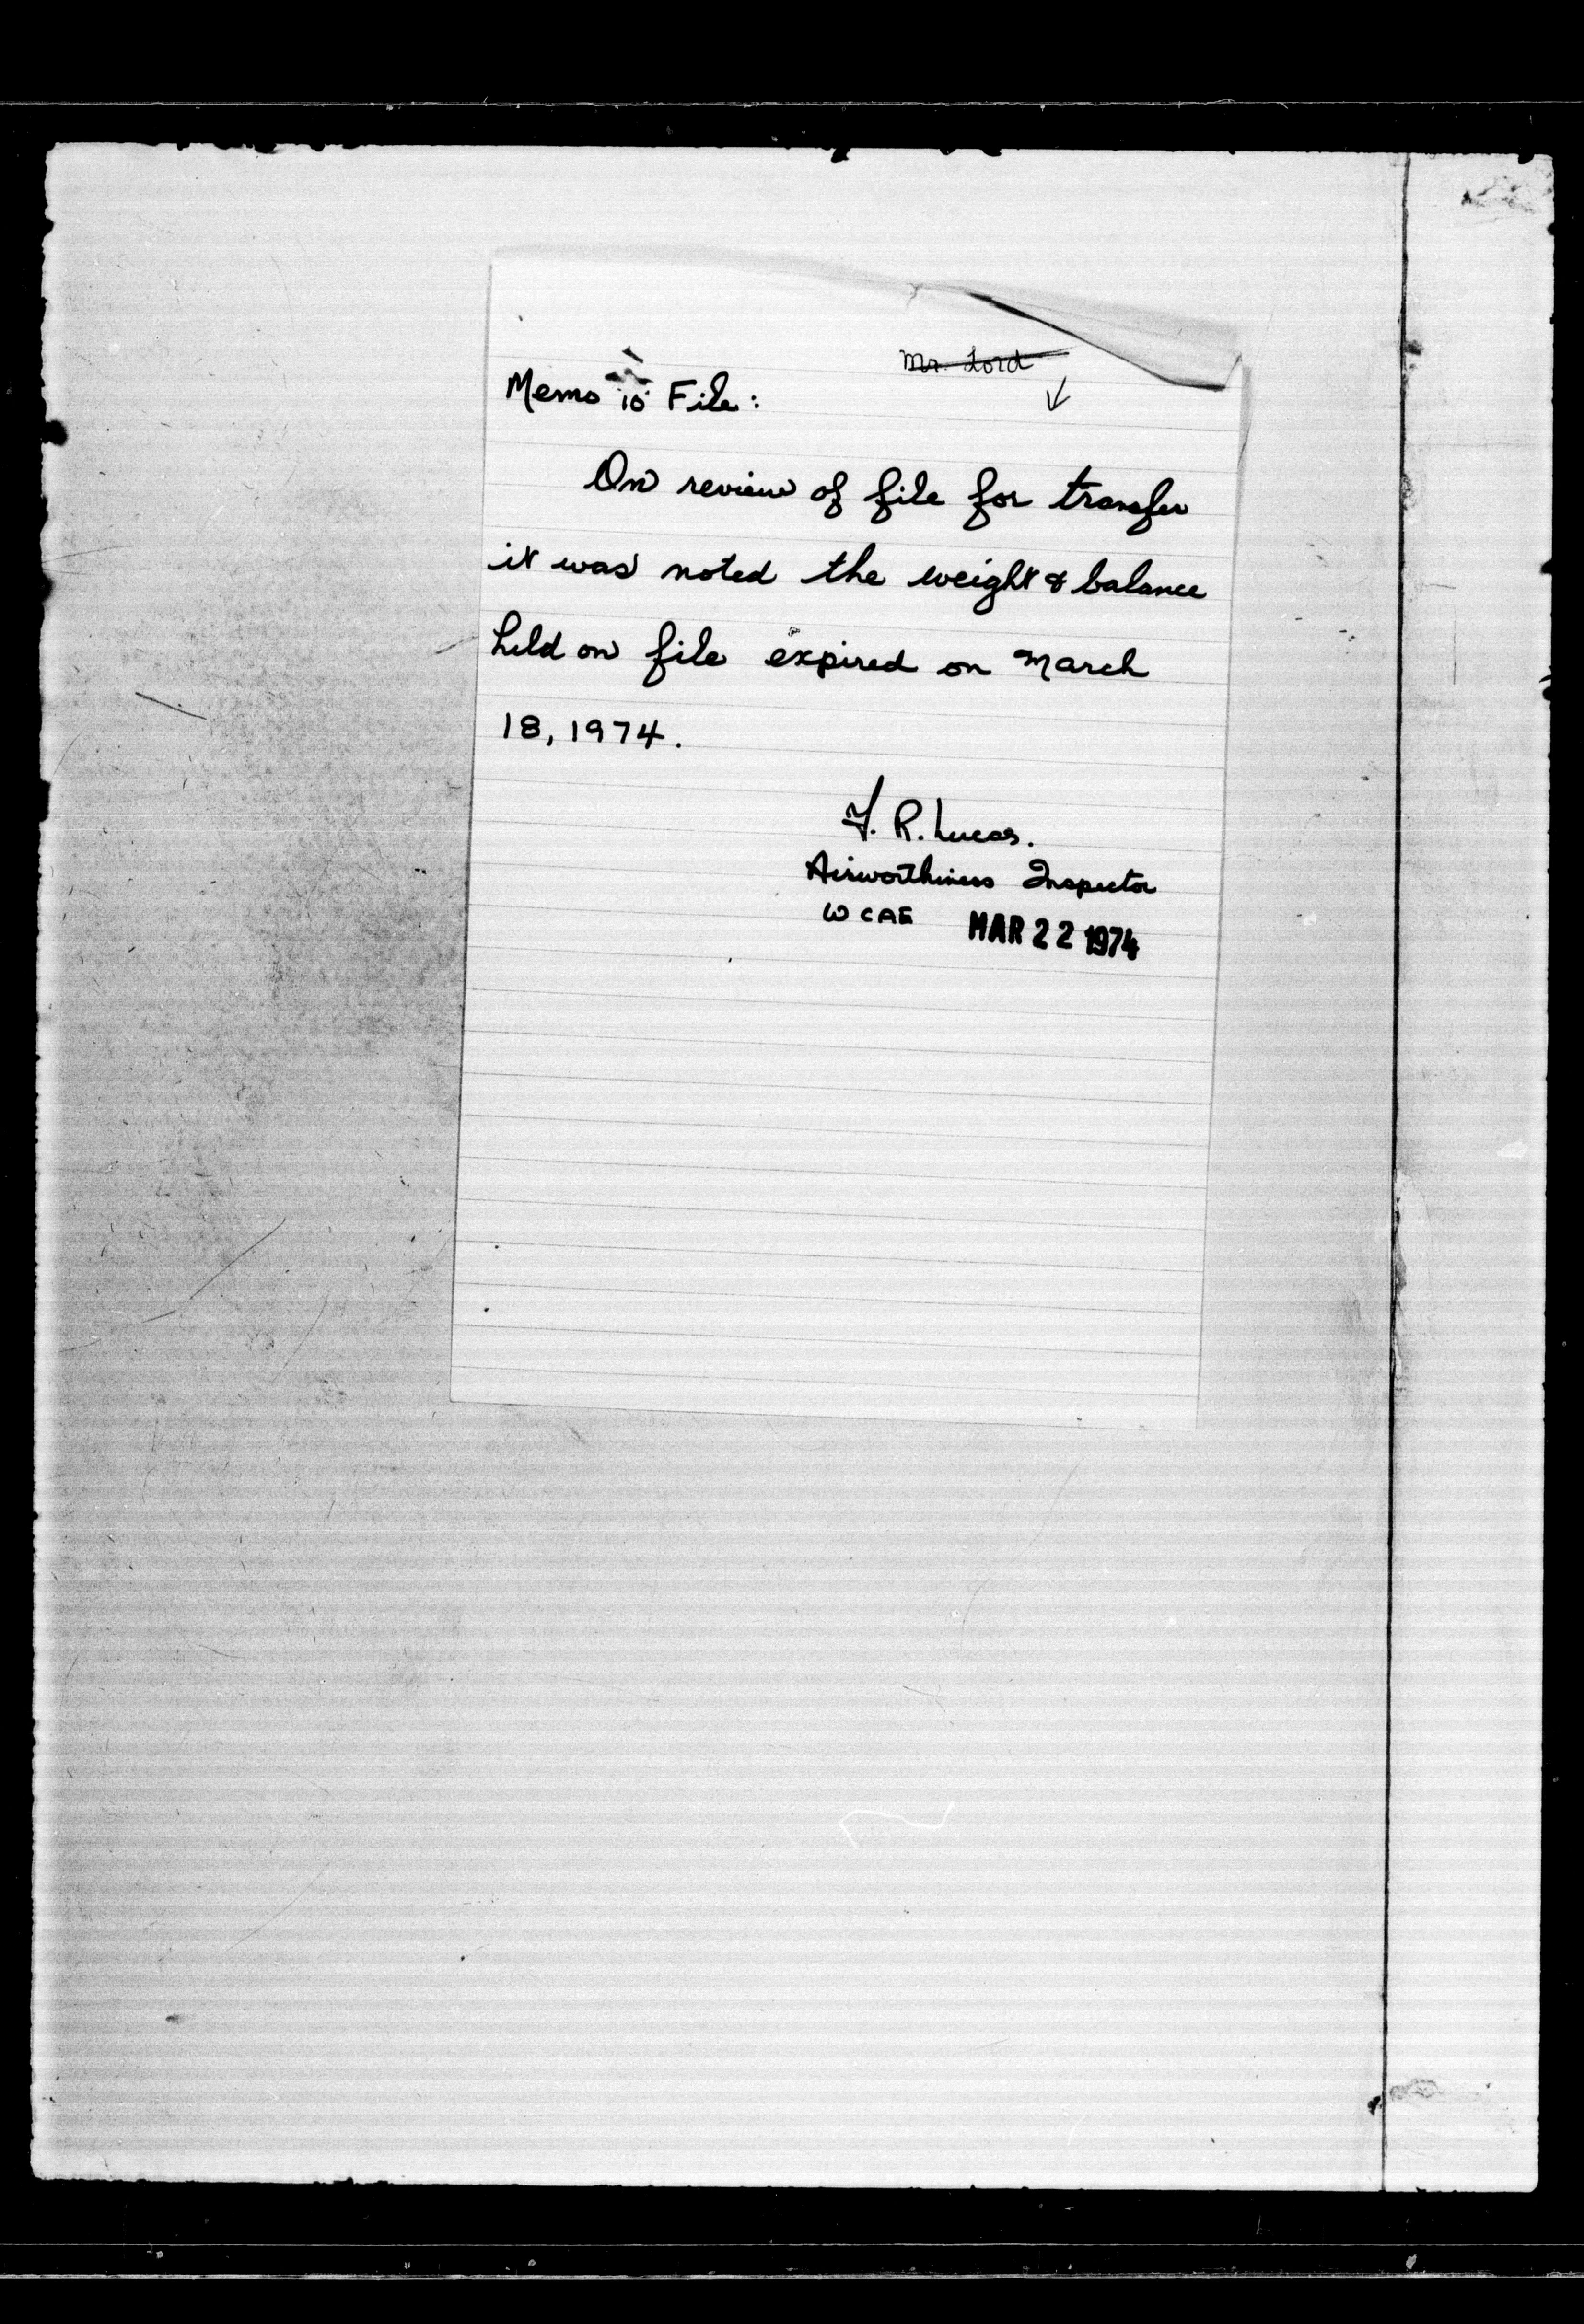 Mr. Lord
Memo to File:
On review of file for transfer
it was noted the weight & balance
held on file expired on March
18, 1974.
F. R. Lucas.
Airworthiness Inspector
WCAE MAR 22 1974